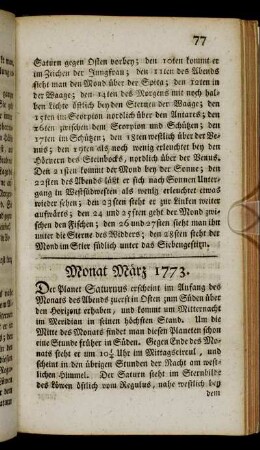 77
Saturn gegen Osten vorbey; den 10ten kommt er
im Zeichen der Jungfrau; den 11ten des Abends
steht man den Mond über der Spica; den 12ten in
der Waage; den 14ten des Morgens mit noch hal-
ben Lichte östlich bey den Sternen der Waage; den
15ten im Scorpion nordlich über den Antares; den
16ten zwischen dem Scorpion und Schützen; den
17ten im Schützen; den 18ten westlich über der Ve-
nus, den 19ten als noch wenig erleuchtet bey den
Hörnern des Steinbocks, nordlich über der Venus.
Den 21sten kommt der Mond bey der Sonne; den
22sten des Abends läßt er sich nach Sonnen Unter-
gang in Westsüdwesten als wenig erleuchtet etwas
wieder sehen; den 23sten steht er zur Linken weiter
aufwärts; den 24 und 25sten geht der Mond zwi-
schen den Fischen; den 26 und 27sten steht man ihn
unter die Sterne des Widders; den 28sten steht der
Mond im Stier südlich unter das Siebengestirn.
Monat März 1773.
Der Planet Saturnus erscheint im Anfang des
Monats des Abends zuerst in Osten zum Süden über
den Horizont erhaben, und kommt um Mitternacht
im Meridian in seinen höchsten Stand. Um die
Mitte des Monats findet man diesen Planeten schon
eine Stunde früher in Süden. Gegen Ende des Mo-
nats steht er um 10¼ Uhr im Mittagscircul, und
scheint in den übrigen Stunden der Nacht am west-
lichen Himmel. Der Saturn steht im Sternbilde
des Löwen östlich vom Regulus, nahe westlich bey
dem